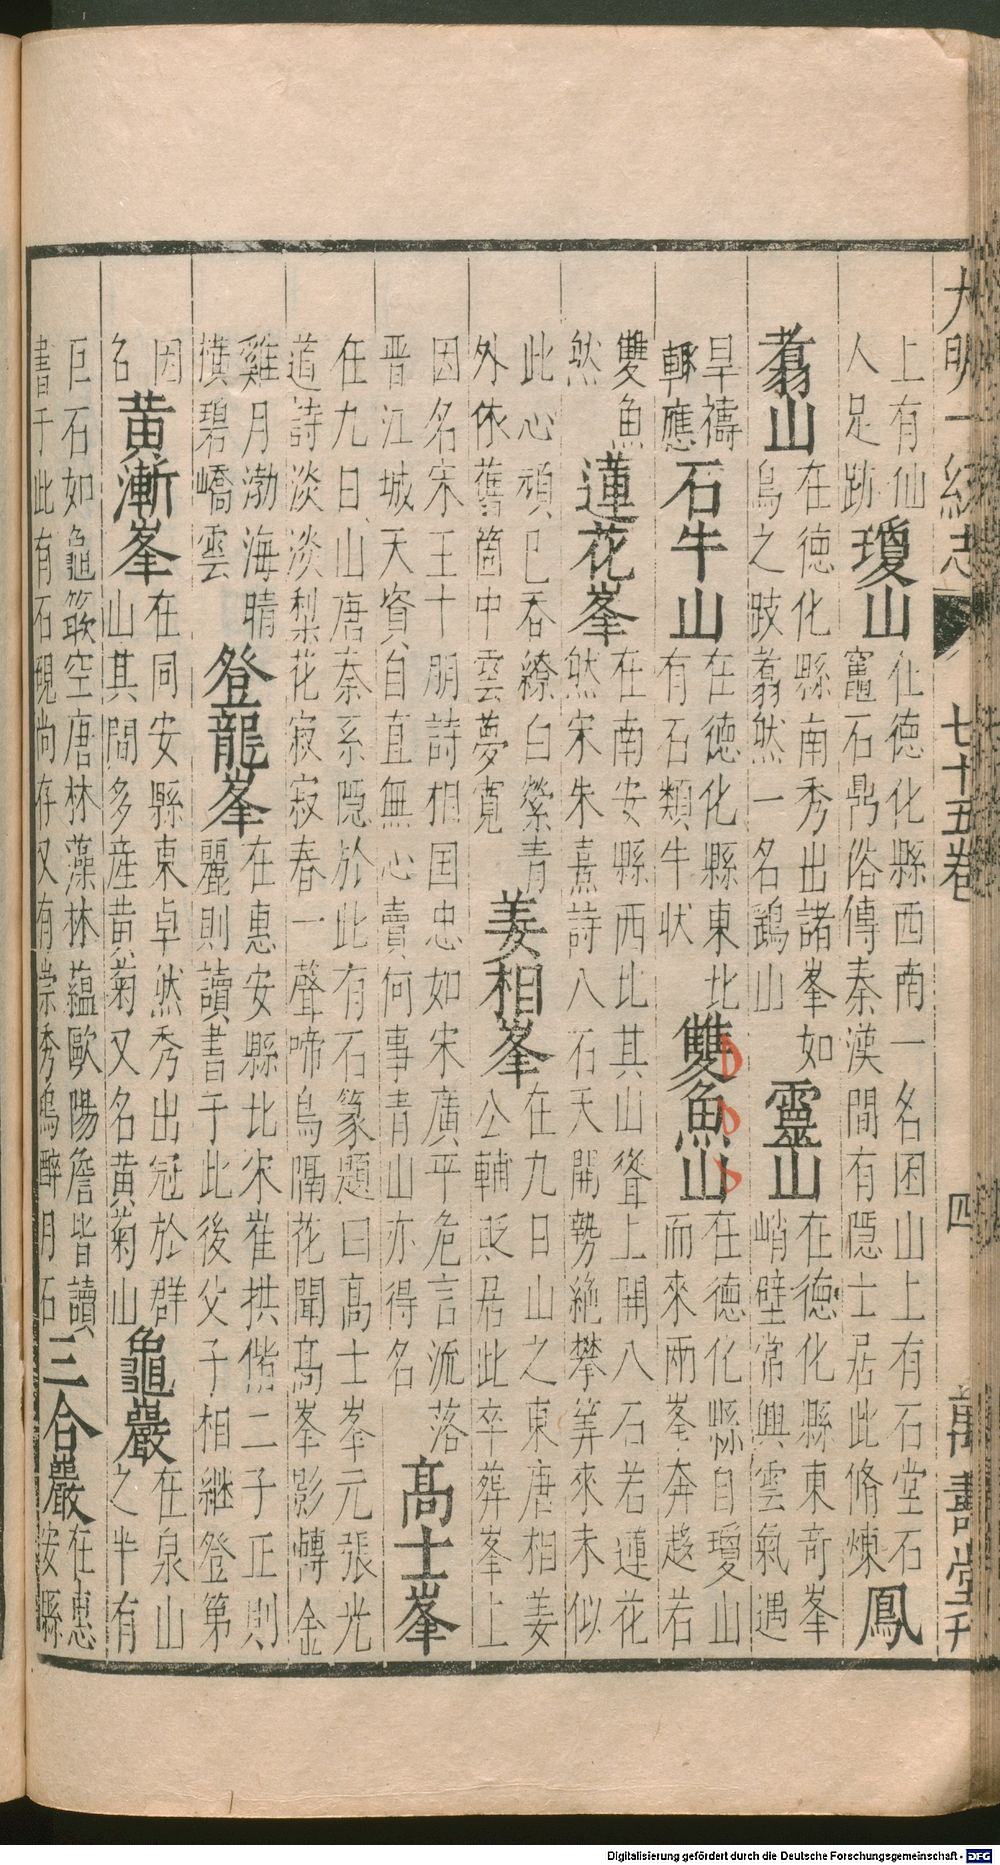 大明一統志 七十五卷 四 萬壽堂刊
上有仙
人足跡
瓊山
在德化縣西南一名囷山上有石堂石
竈石鼎俗傳秦漢間有隱士居此脩煉
鳳
翥山
在德化縣南秀出諸峯如
鳥之跂翥然一名鷄山
靈山
在德化縣東奇峯
峭壁常興雲氣遇
旱禱
輙應
石牛山
在德化縣東北
有石類牛状
雙魚山
在德化縣自瓊山
而來兩峯奔趍若
雙魚
然
蓮花峯
在南安縣西北其山聳上開八石若蓮花
然宋朱熹詩八石天開勢絶攀筭來未似
此心頑已吞繚白縈青
外依舊箇中雲夢寬
姜相峯
在九日山之東唐相姜
公輔貶居此卒葬峯上
因名宋王十朋詩相国忠如宋廣平危言流落
晋江城天資自直無心賣何事青山亦得名
高士峯
在九日山唐秦系隠於此有石篆題曰高士峯元張光
道詩淡淡梨花寂寂春一聲啼鳥隔花聞高峯影轉金
雞月渤海晴
擴碧嶠雲
登龍峯
在惠安縣北宋崔拱偕二子正則
麗則讀書于此後父子相継登第
因
名
黄漸峯
在同安縣東卓然秀出冠於群
山其間多産黄菊又名黄菊山
龜巖
在泉山
之半有
巨石如龜簐空唐林藻林藴歐陽詹皆讀
書于此有石硯尚存又有崇秀塢醉月石
三合巖
在惠
安縣
Digitalisierung gefördert durch die Deutsche Forschungsgemeinschaft - DFG